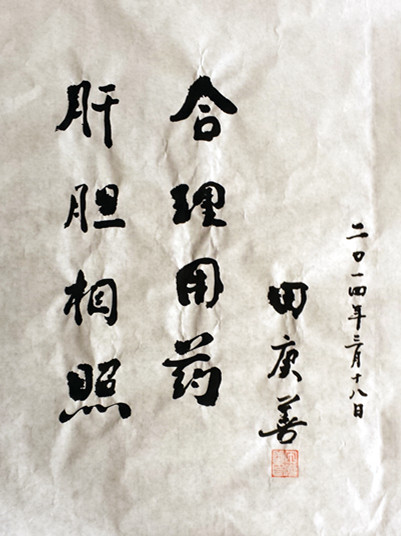 肝胆相照
合理用药
田庚善
二〇一四年三月十八日